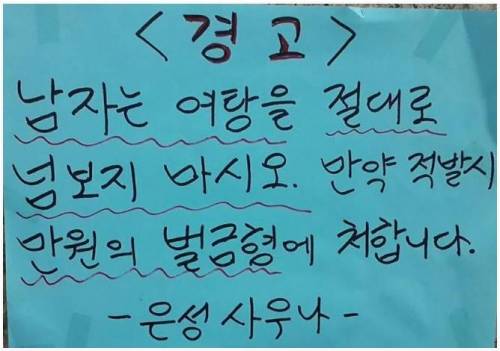 <경고>
남자는 여탕을 절대로
넘보지 마시오. 만약 적발시
만원의 벌금형에 처합니다.
- 은성 사우나 -